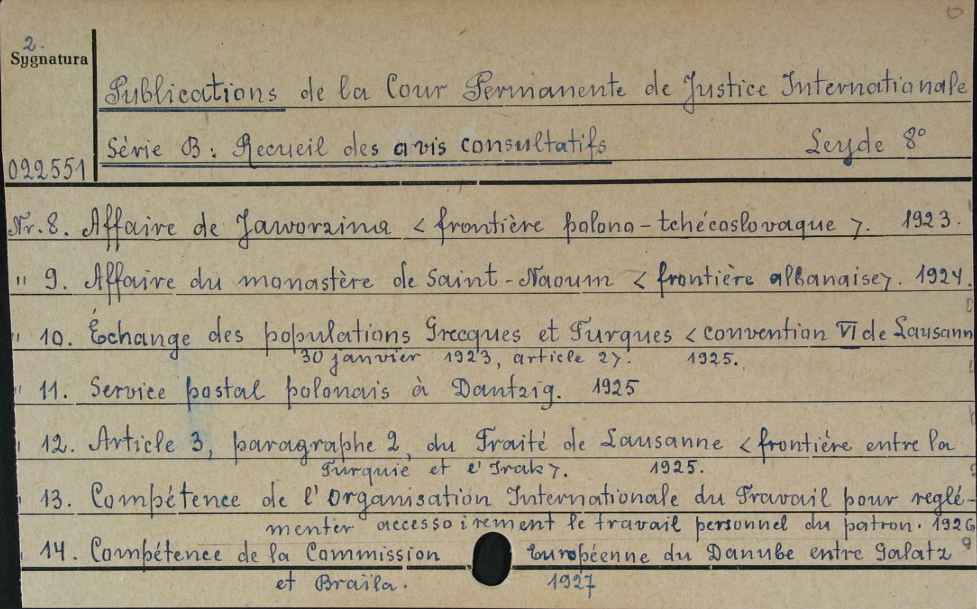 2.
Sygnatura
Publications de la Cour Permanente de Justice Internationale
Série B: Recueil des avis consultatifs Leyde 8°
022551
Nr. 8. Affaire de Jaworzina < frontière polono-tchécoslovaque >. 1923.
" 9. Affaire du monastère de Saint-Naoum < frontière albanaise>. 1924.
" 10. Échange des populations Grecques et Turques < convention VI de Lausann
30 janvier 1923, article 2>. 1925.
" 11. Service postal polonais à Dantzig. 1925
" 12. Article 3, paragraphe 2, du Traité de Lausanne < frontière entre la
Turquie et l'Irak >. 1925.
" 13. Compétence de l'Organisation Internationale du Travail pour reglé-
menter accessoirement le travail personnel du patron. 1926
" 14. Compétence de la Commission Européenne du Danube entre Galatz
et Braïla. 1927